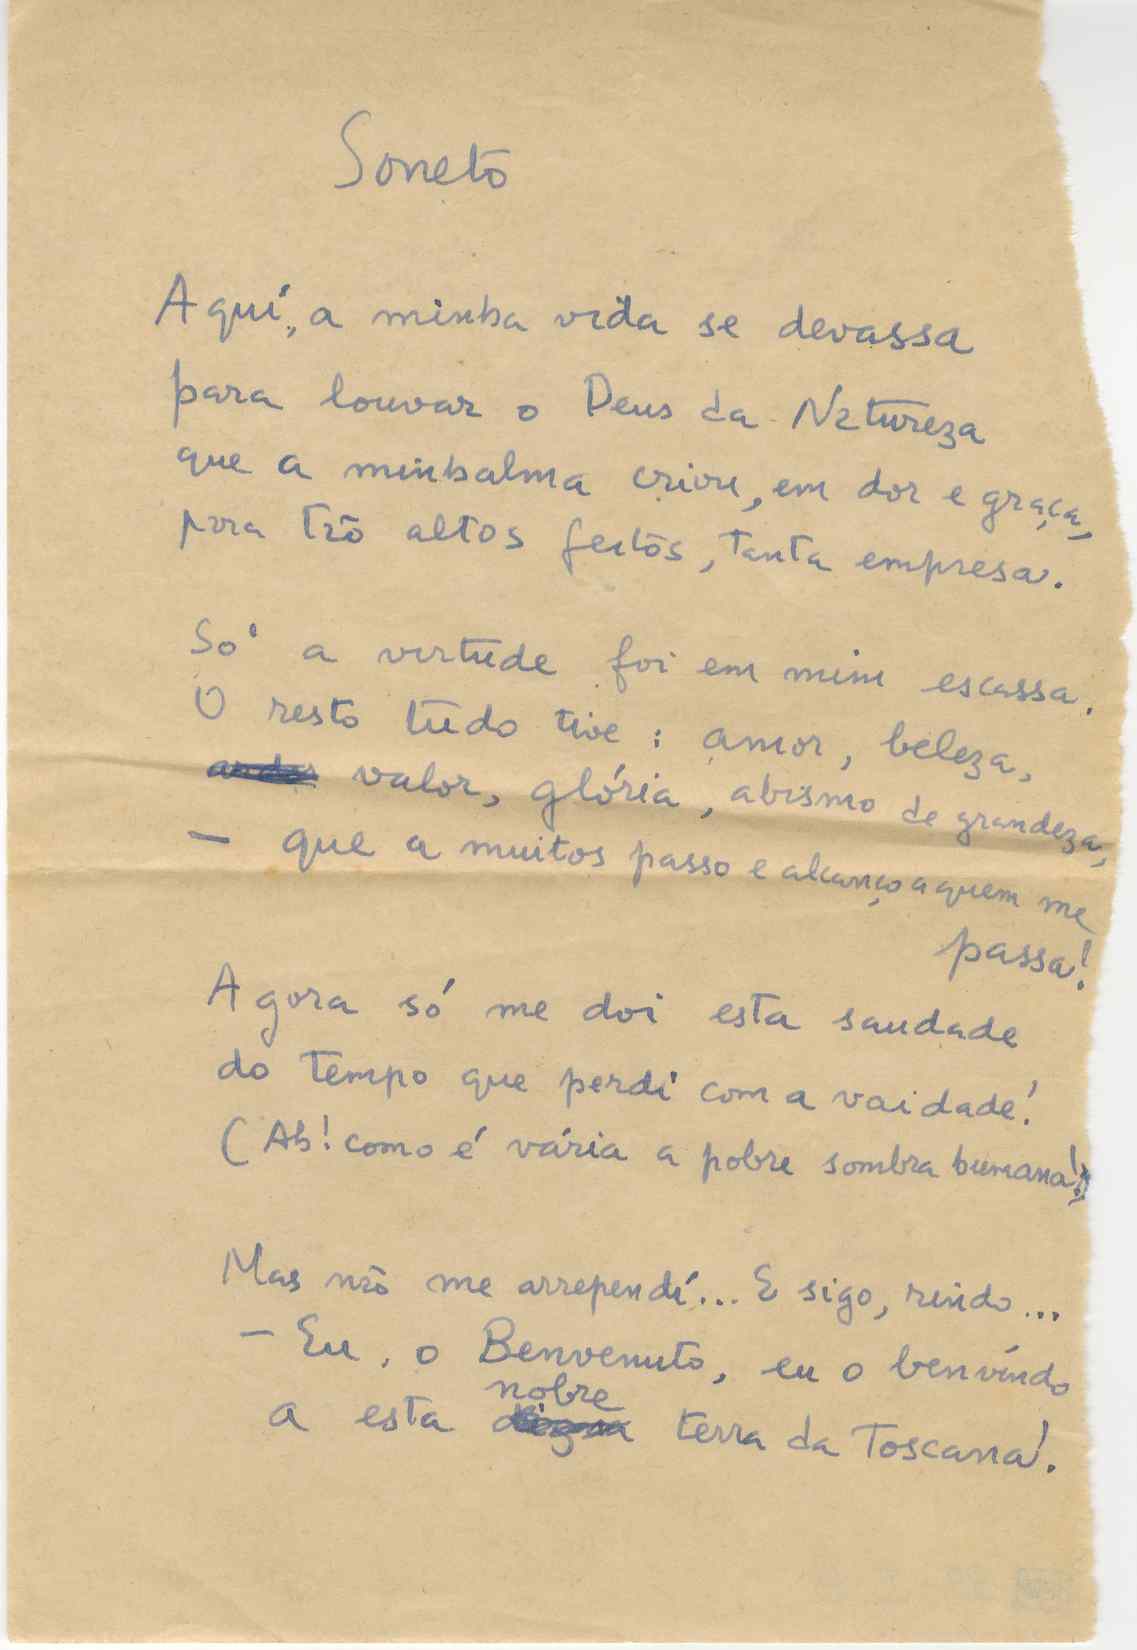 Soneto
Aquí, a minha vida se devassa
para louvar o Deus da Natureza
que a minhalma criou, em dor e graça,
para tão altos feitos, tanta empresa.
Só a virtude foi em mim escassa.
O resto tudo tive: amor, beleza,
valor, glória, abismo de grandeza,
— que a muitos passo e alcanço a quem me
passa!
Agora só me doi esta saudade
do tempo que perdí com a vaidade!
(Ah! como é vária a pobre sombra humana!)
Mas não me arrependí... E sigo, rindo...
— Eu, o Benvenuto, eu o benvíndo
nobre
a esta digna terra da Toscana!.